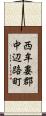 西牟婁郡
中辺路町